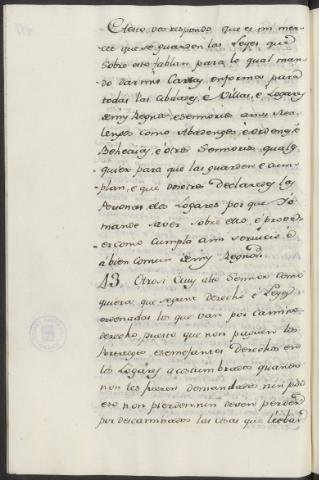 A esto vos respondo que es mi mer-
ced que se guarden las Leyes que
sobre esto fablan para lo qual man-
do dar mis Cartas en forma para
todas las cibdades, é Villas, é Logares
de mis Regnos, é Señorios asi Rea-
lengos como Abadengos é ordenes, é
Behetrias, é otros Señorios quales-
quier para que las guarden e cum-
plan, é que vosotros declaredes las
Personas e los Logares por que Yo
mande saver sobre ello é proveer
como cumpla a mi servicio é
a bien comun de mis Regnos.
43. Otrosi Muy alto Señor como
quiera que segunt derecho é Leyes
ordenadas los que van por camino
derecho puesto que non paguen los
Portazgos e semejantes derechos en
los Logares acostumbrados quando
non les fueren demandados nin por
eso non pierden nin deven perder
por descaminados las cosas que lieban